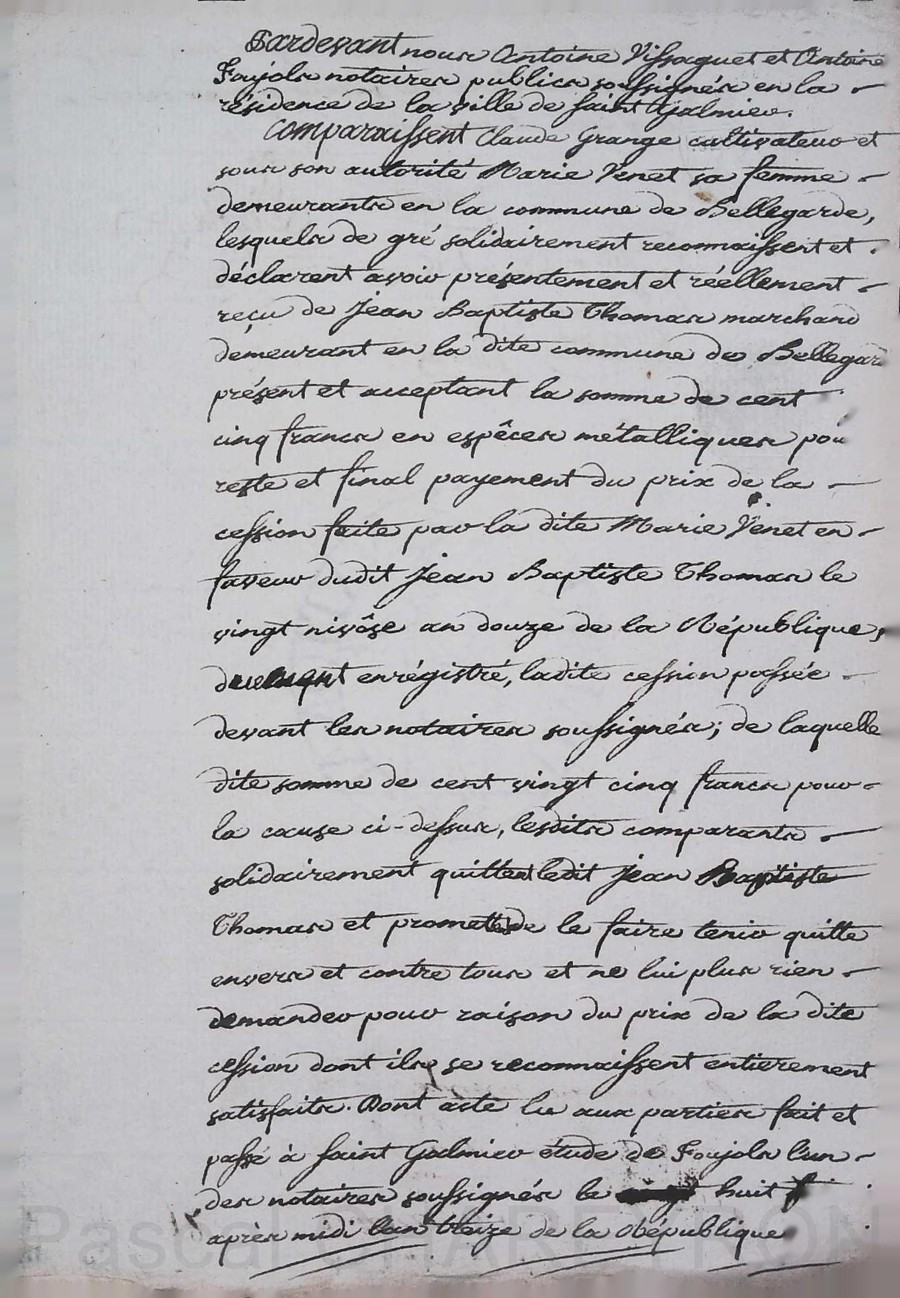 Pardevant nous Antoine Vissaguet et Antoine
Foujols notaires publics soussignés en la
résidence de la ville de Saint Galmier.
Comparaissent Claude Grange cultivateur et
sous son autorité Marie Venet sa femme
demeurants en la commune de Bellegarde,
lesquels de gré solidairement reconnaissent et
déclarent avoir présentement et réellement
reçu de Jean Baptiste Thomas marchand
demeurant en la dite commune de Bellegar
présent et acceptant la somme de cent
cinq francs en espêces métalliques pou
reste et final payement du prix de la
cession faite par la dite Marie Venet en
faveur dudit Jean Baptiste Thomas le
vingt nivôse an douze de la République,
duement enrégistré, ladite cession passée
devant les notaires soussignés; de laquelle
dite somme de cent vingt cinq francs pour
la cause ci-dessus, lesdits comparants
solidairement quittent ledit Jean Baptiste
Thomas et promettent de le faire tenir quitte
envers et contre tous et ne lui plus rien
demander pour raison du prix de la dite
cession dont ils se reconnaissent entierement
satisfaits. Dont acte lu aux parties fait et
passé à Saint Galmier étude de Foujols l'un
des notaires soussignés le huit
après midi l'an treize de la République